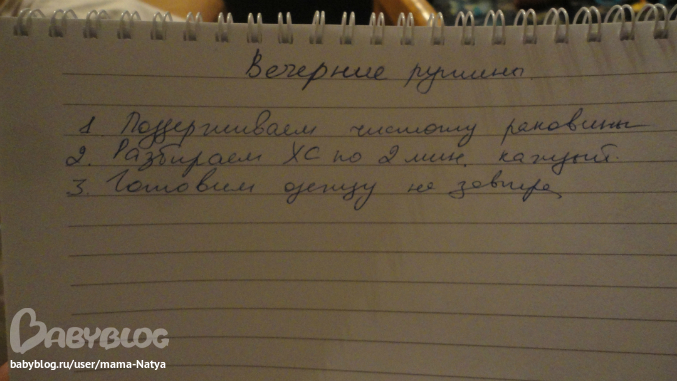 Вечерние рутины
1. Поддерживаем чистоту раковины
2. Разбираем ХС по 2 мин. каждый.
3. Готовим одежду на завтра
BABYBLOG
babyblog.ru/user/mama-Natya